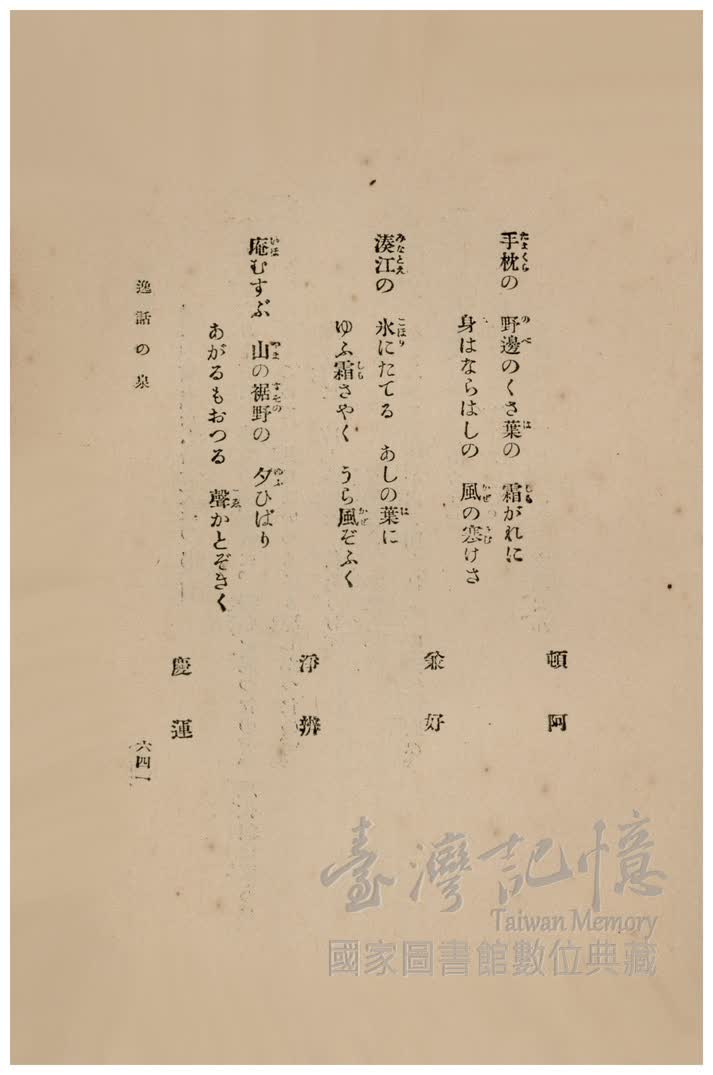 頓阿
手枕の 野邊のくさ葉の 霜がれに
身はならはしの 風の寒けさ
兼好
湊江の 氷にたてる あしの葉に
ゆふ霜さやく うら風ぞふく
淨辨
庵むすぶ 山の裾野の 夕ひばり
あがるもおつる 聲かとぞきく
慶運
逸話の泉
六四一
臺灣記憶
Taiwan Memory
國家圖書館數位典藏